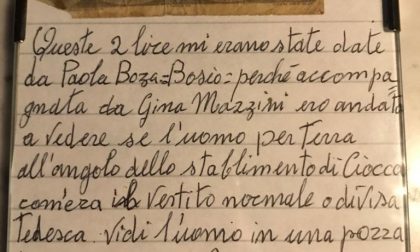 Queste 2 lire mi erano state date
da Paola Boza=Bosio= perché accompa
gnata da Gina Mazzini ero andata
a vedere se l'uomo per terra
all'angolo dello stablimento di Ciocca
com'era vestito normale o divisa
tedesca. vidi l'uomo in una pozza